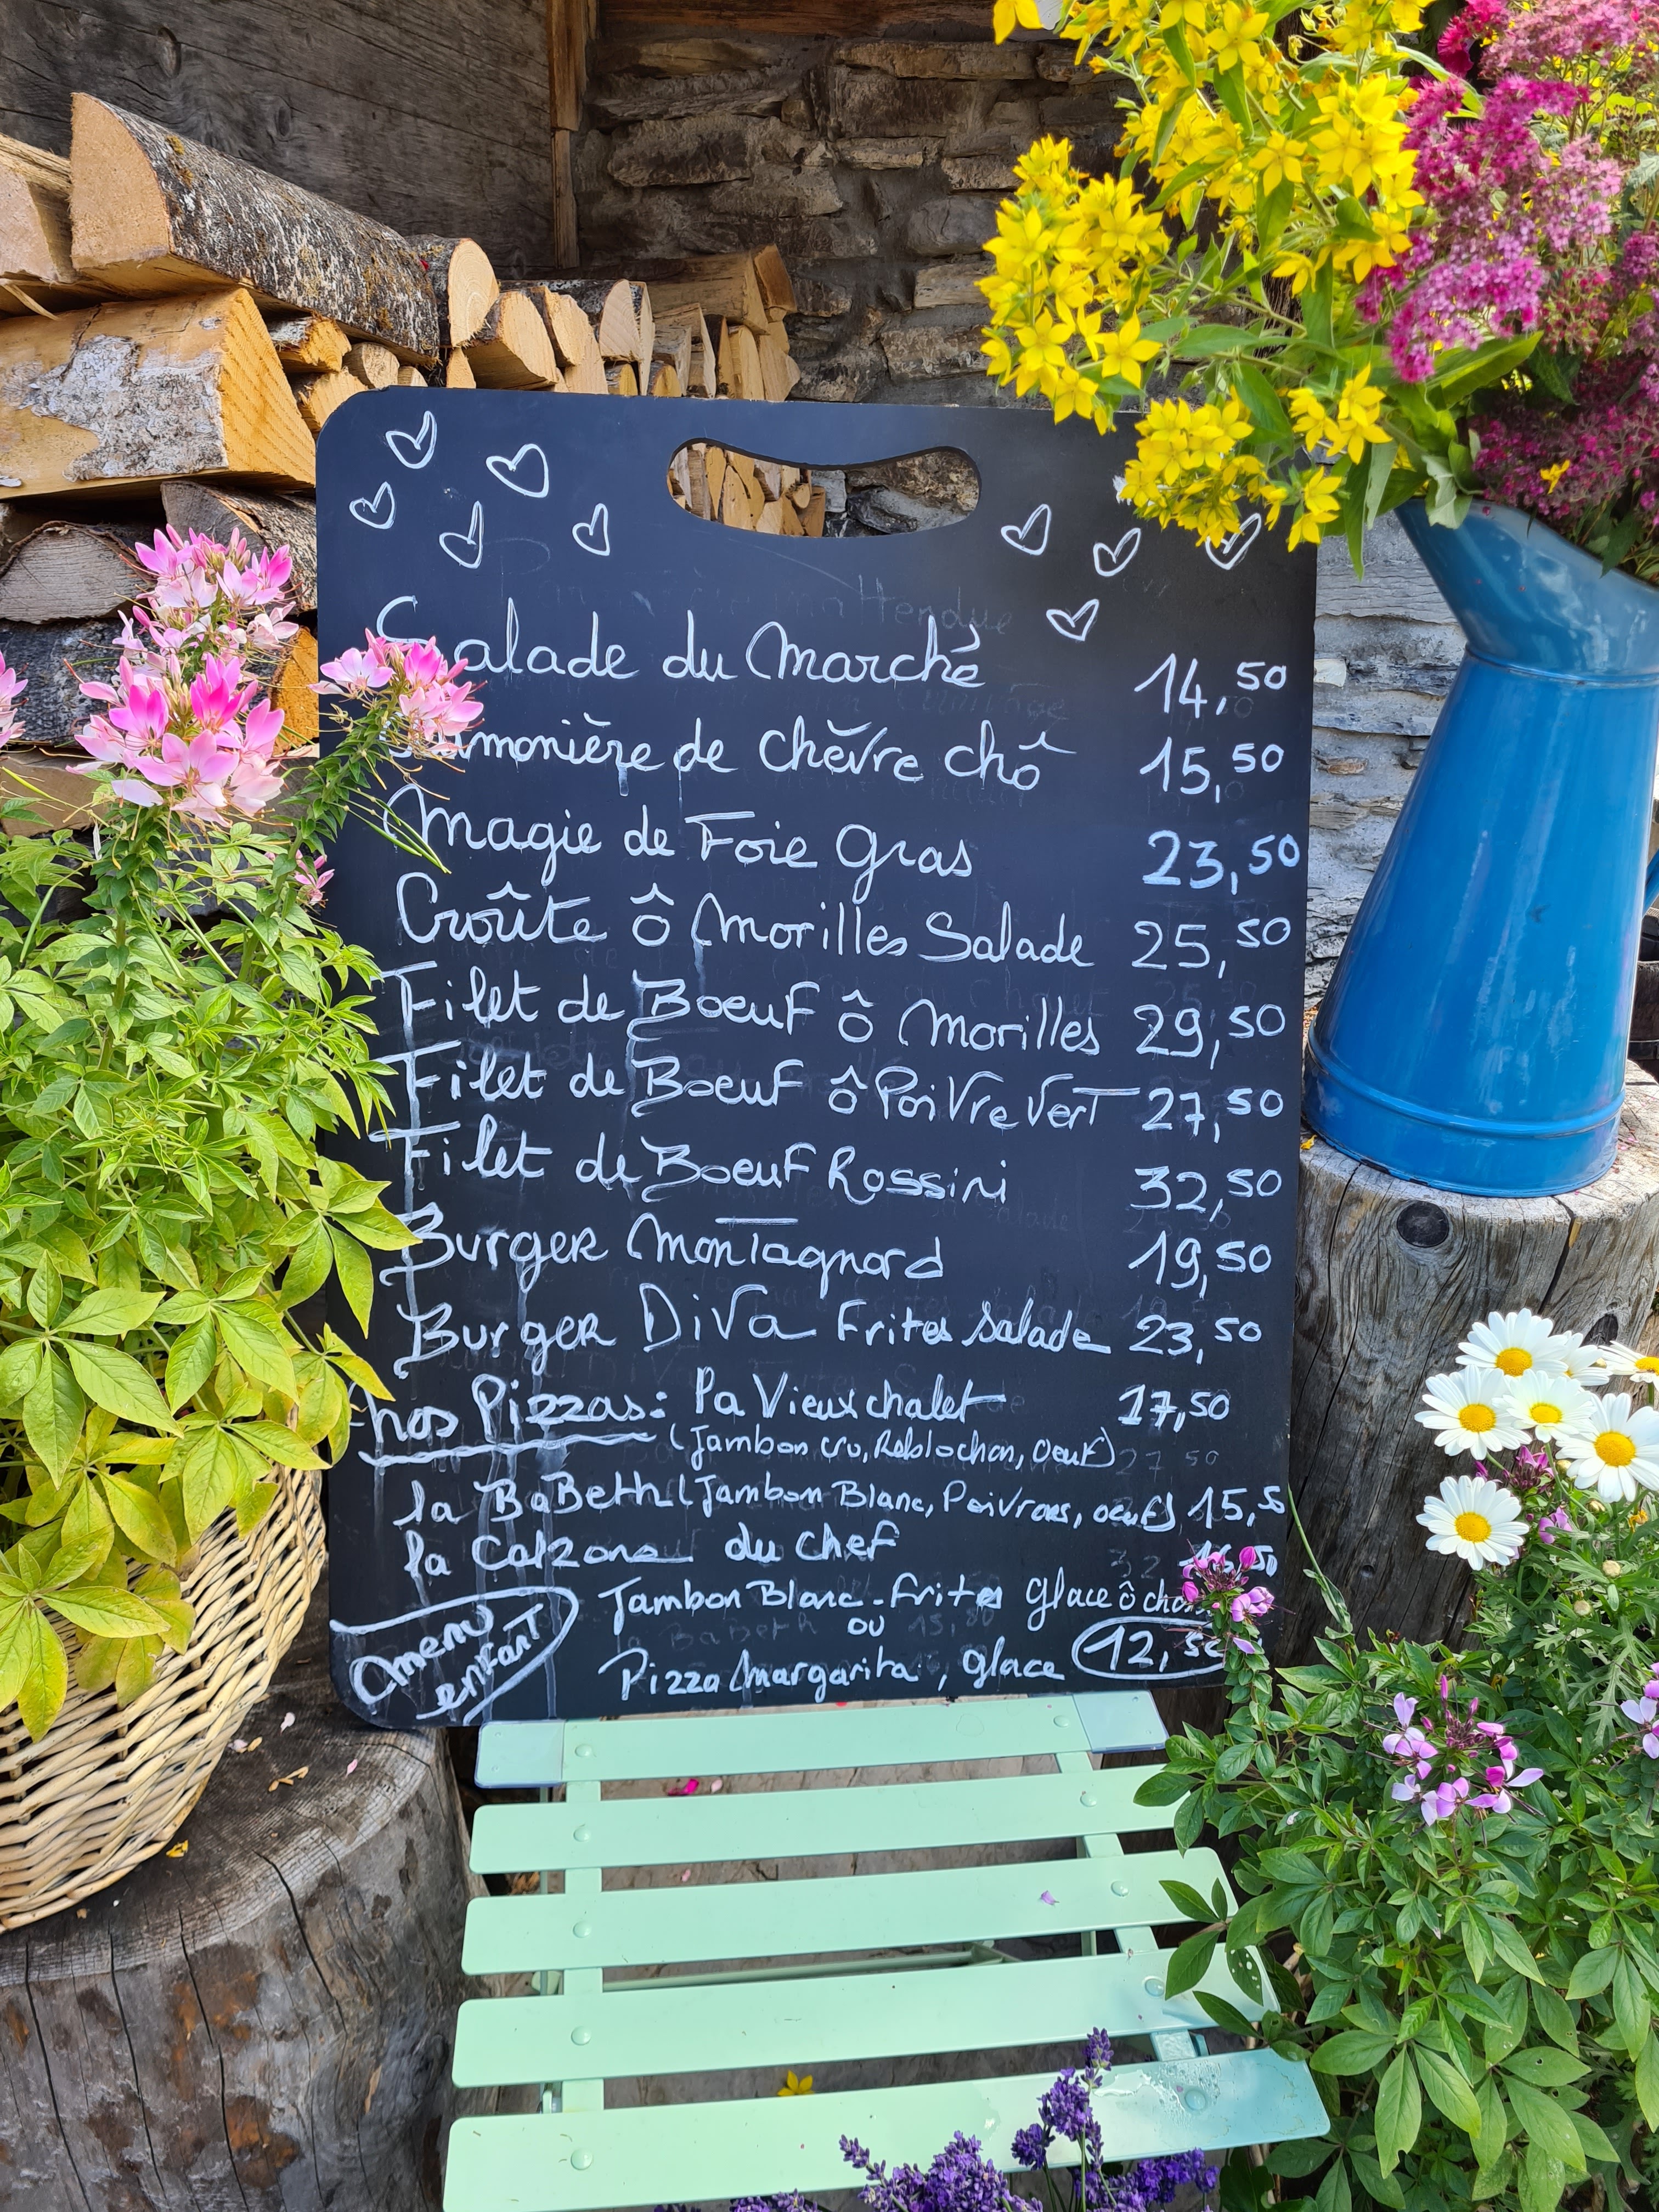 Salade du Marché 14,50
Aumonière de Chèvre chô 15,50
Magie de Foie Gras 23,50
Croûte ô Morilles Salade 25,50
Filet de Boeuf ô Morilles 29,50
Filet de Boeuf ô Poivre Vert 27,50
Filet de Boeuf Rossini 32,50
Burger Montagnard 19,50
Burger Diva Frites Salade 23,50
nos Pizzas: Pa Vieux chalet 17,50
(Jambon cru, Reblochon, oeuf)
la BaBeth (Jambon Blanc, Poivrons, oeuf) 15,5
la Calzone du chef
Jambon Blanc - frites Glace ô
ou
menu enfant
Pizza Margarita, glace 12,50